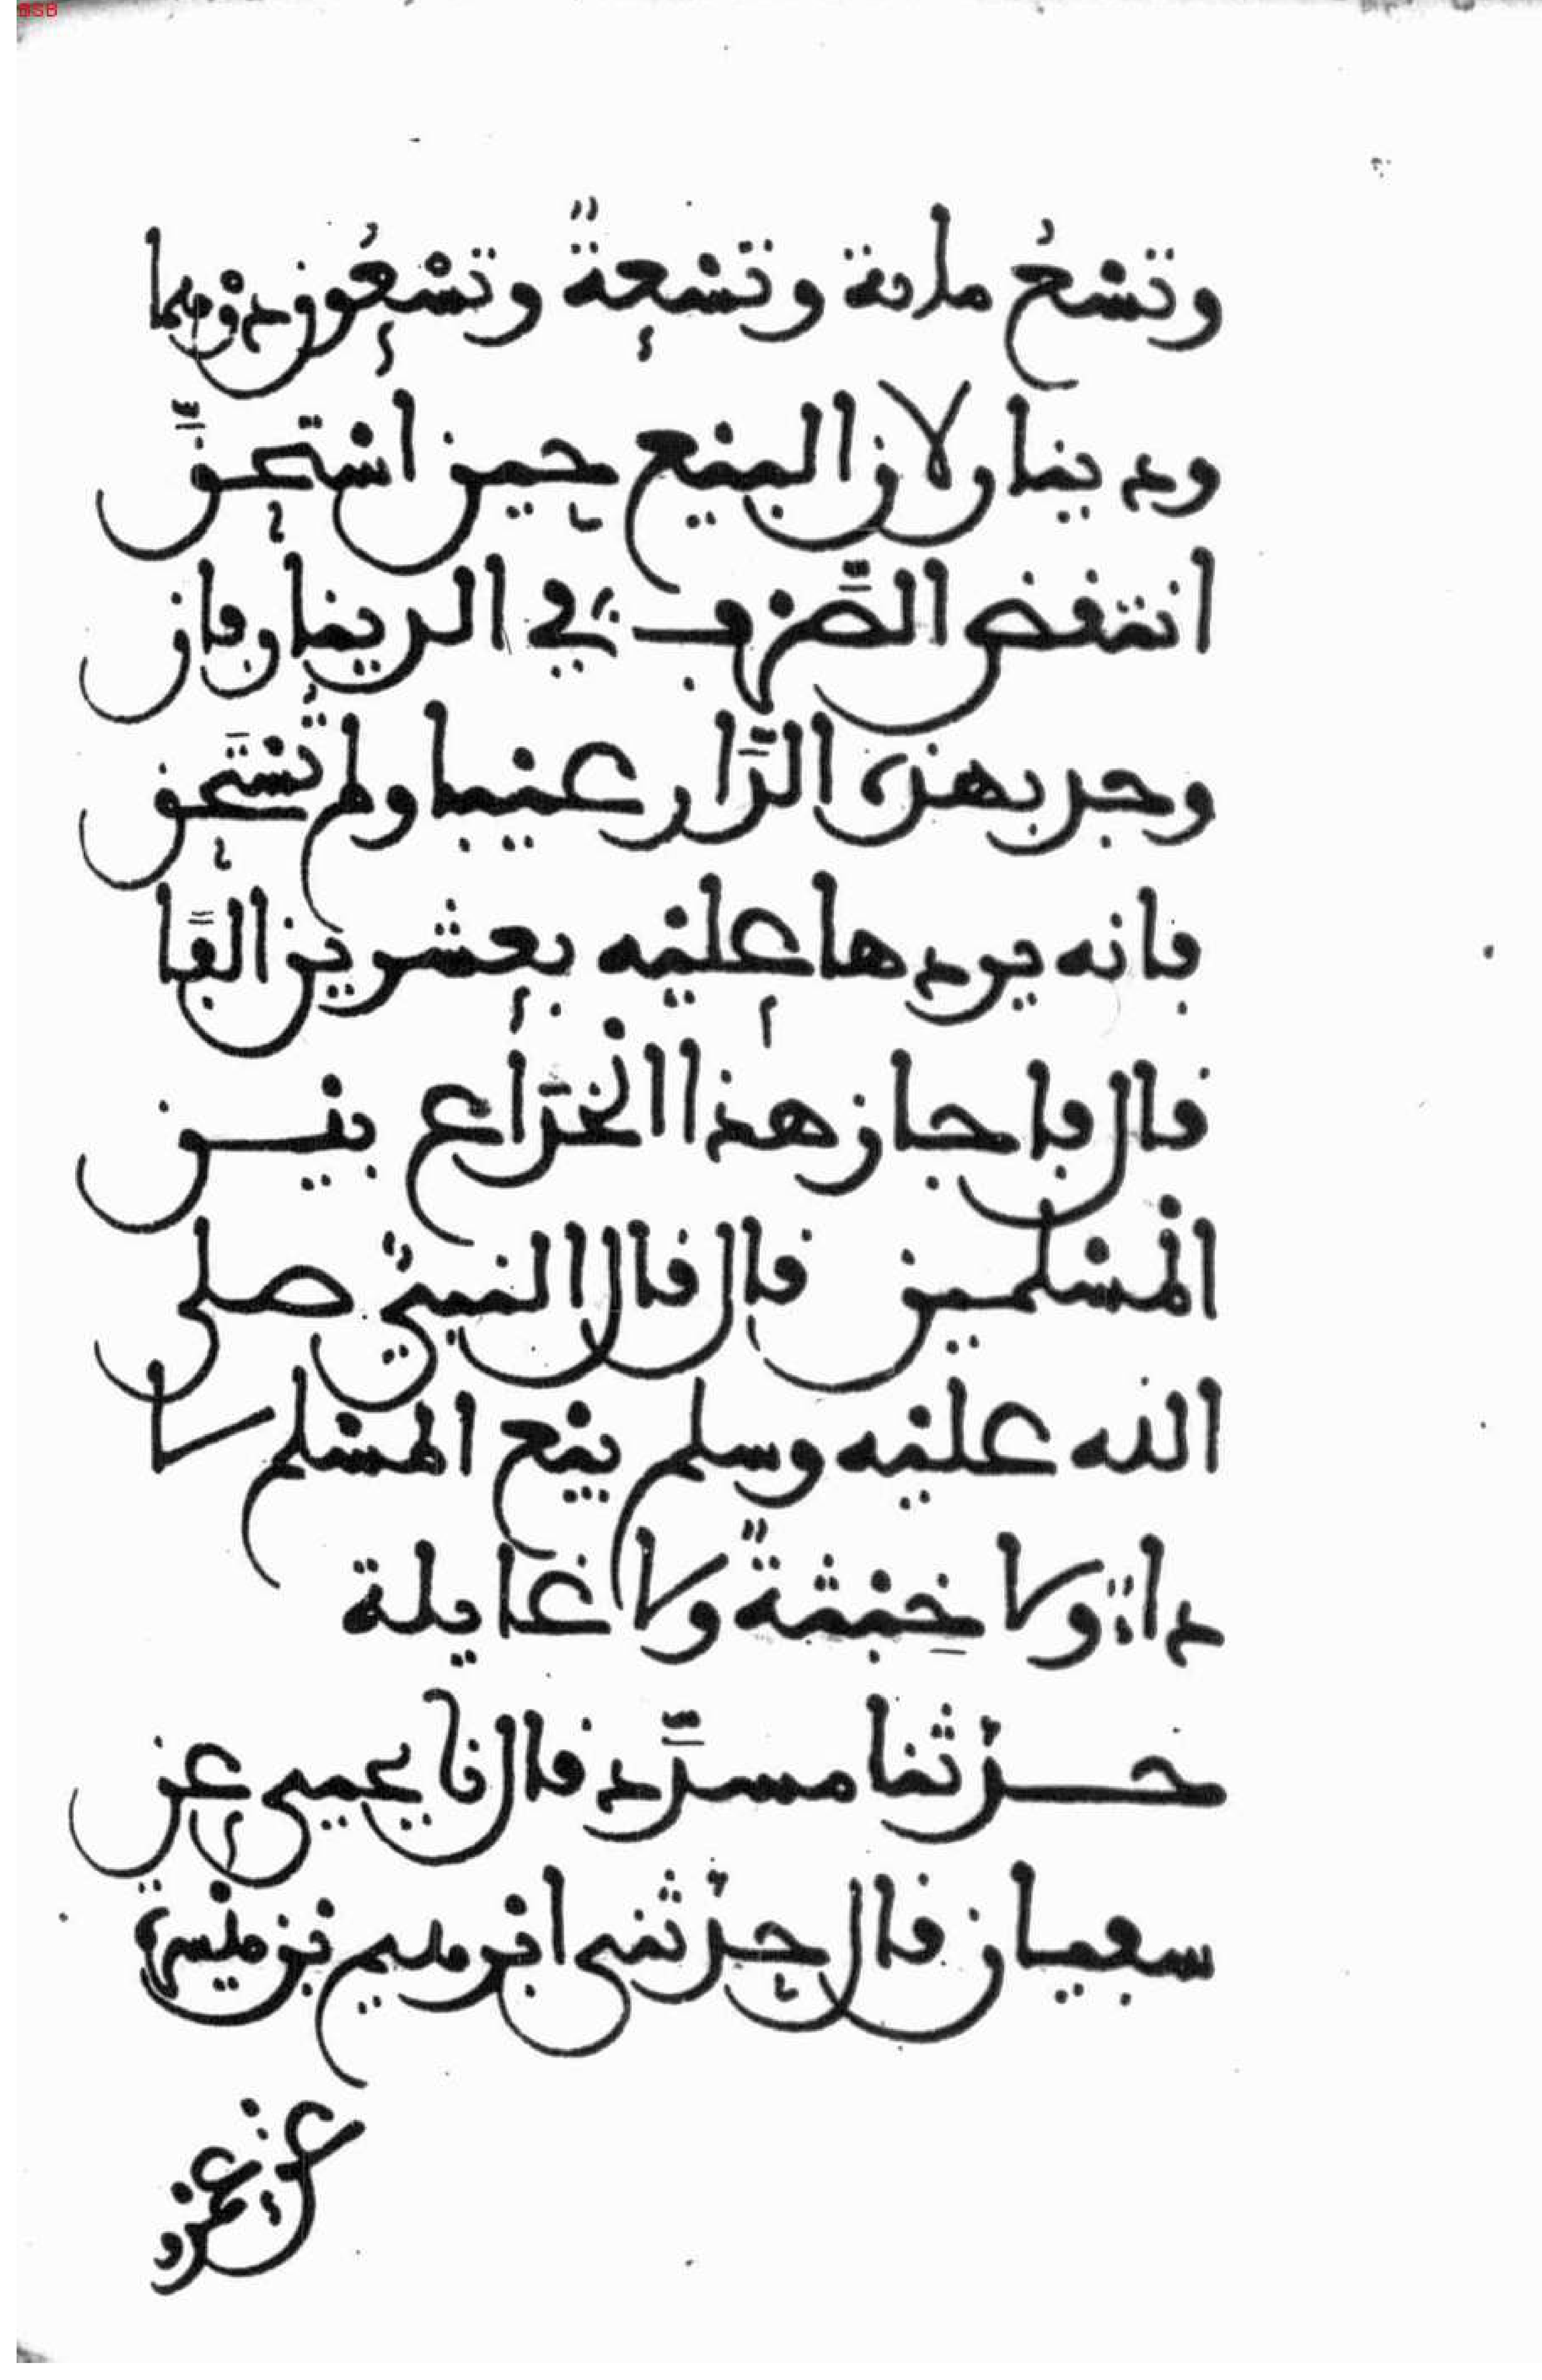 BSB
وتسْعُ مائة وتسْعةً وتسْعُون درْهما
ودينار لان البيْع حين اسْتحقَّ
انتقض الصَّرْف في الدينار فان
وجد بهذه الدَّار عيْبا ولم تُسْتَحق
فانه يردها عليْه بعشرين الفًا
قال فاجاز هذا الْخدَاع بيْن
الْمسْلمين قال قال النبيُّ صلى
الله عليْه وسلم بيْع المسْلم لا
داء ولا خبْثةً ولا غايلة
حدثنا مسدَّد قال نا يحيى عن
سفيان قال حدثنى ابْرهيم بْن ميْسرة
عن عمْرو